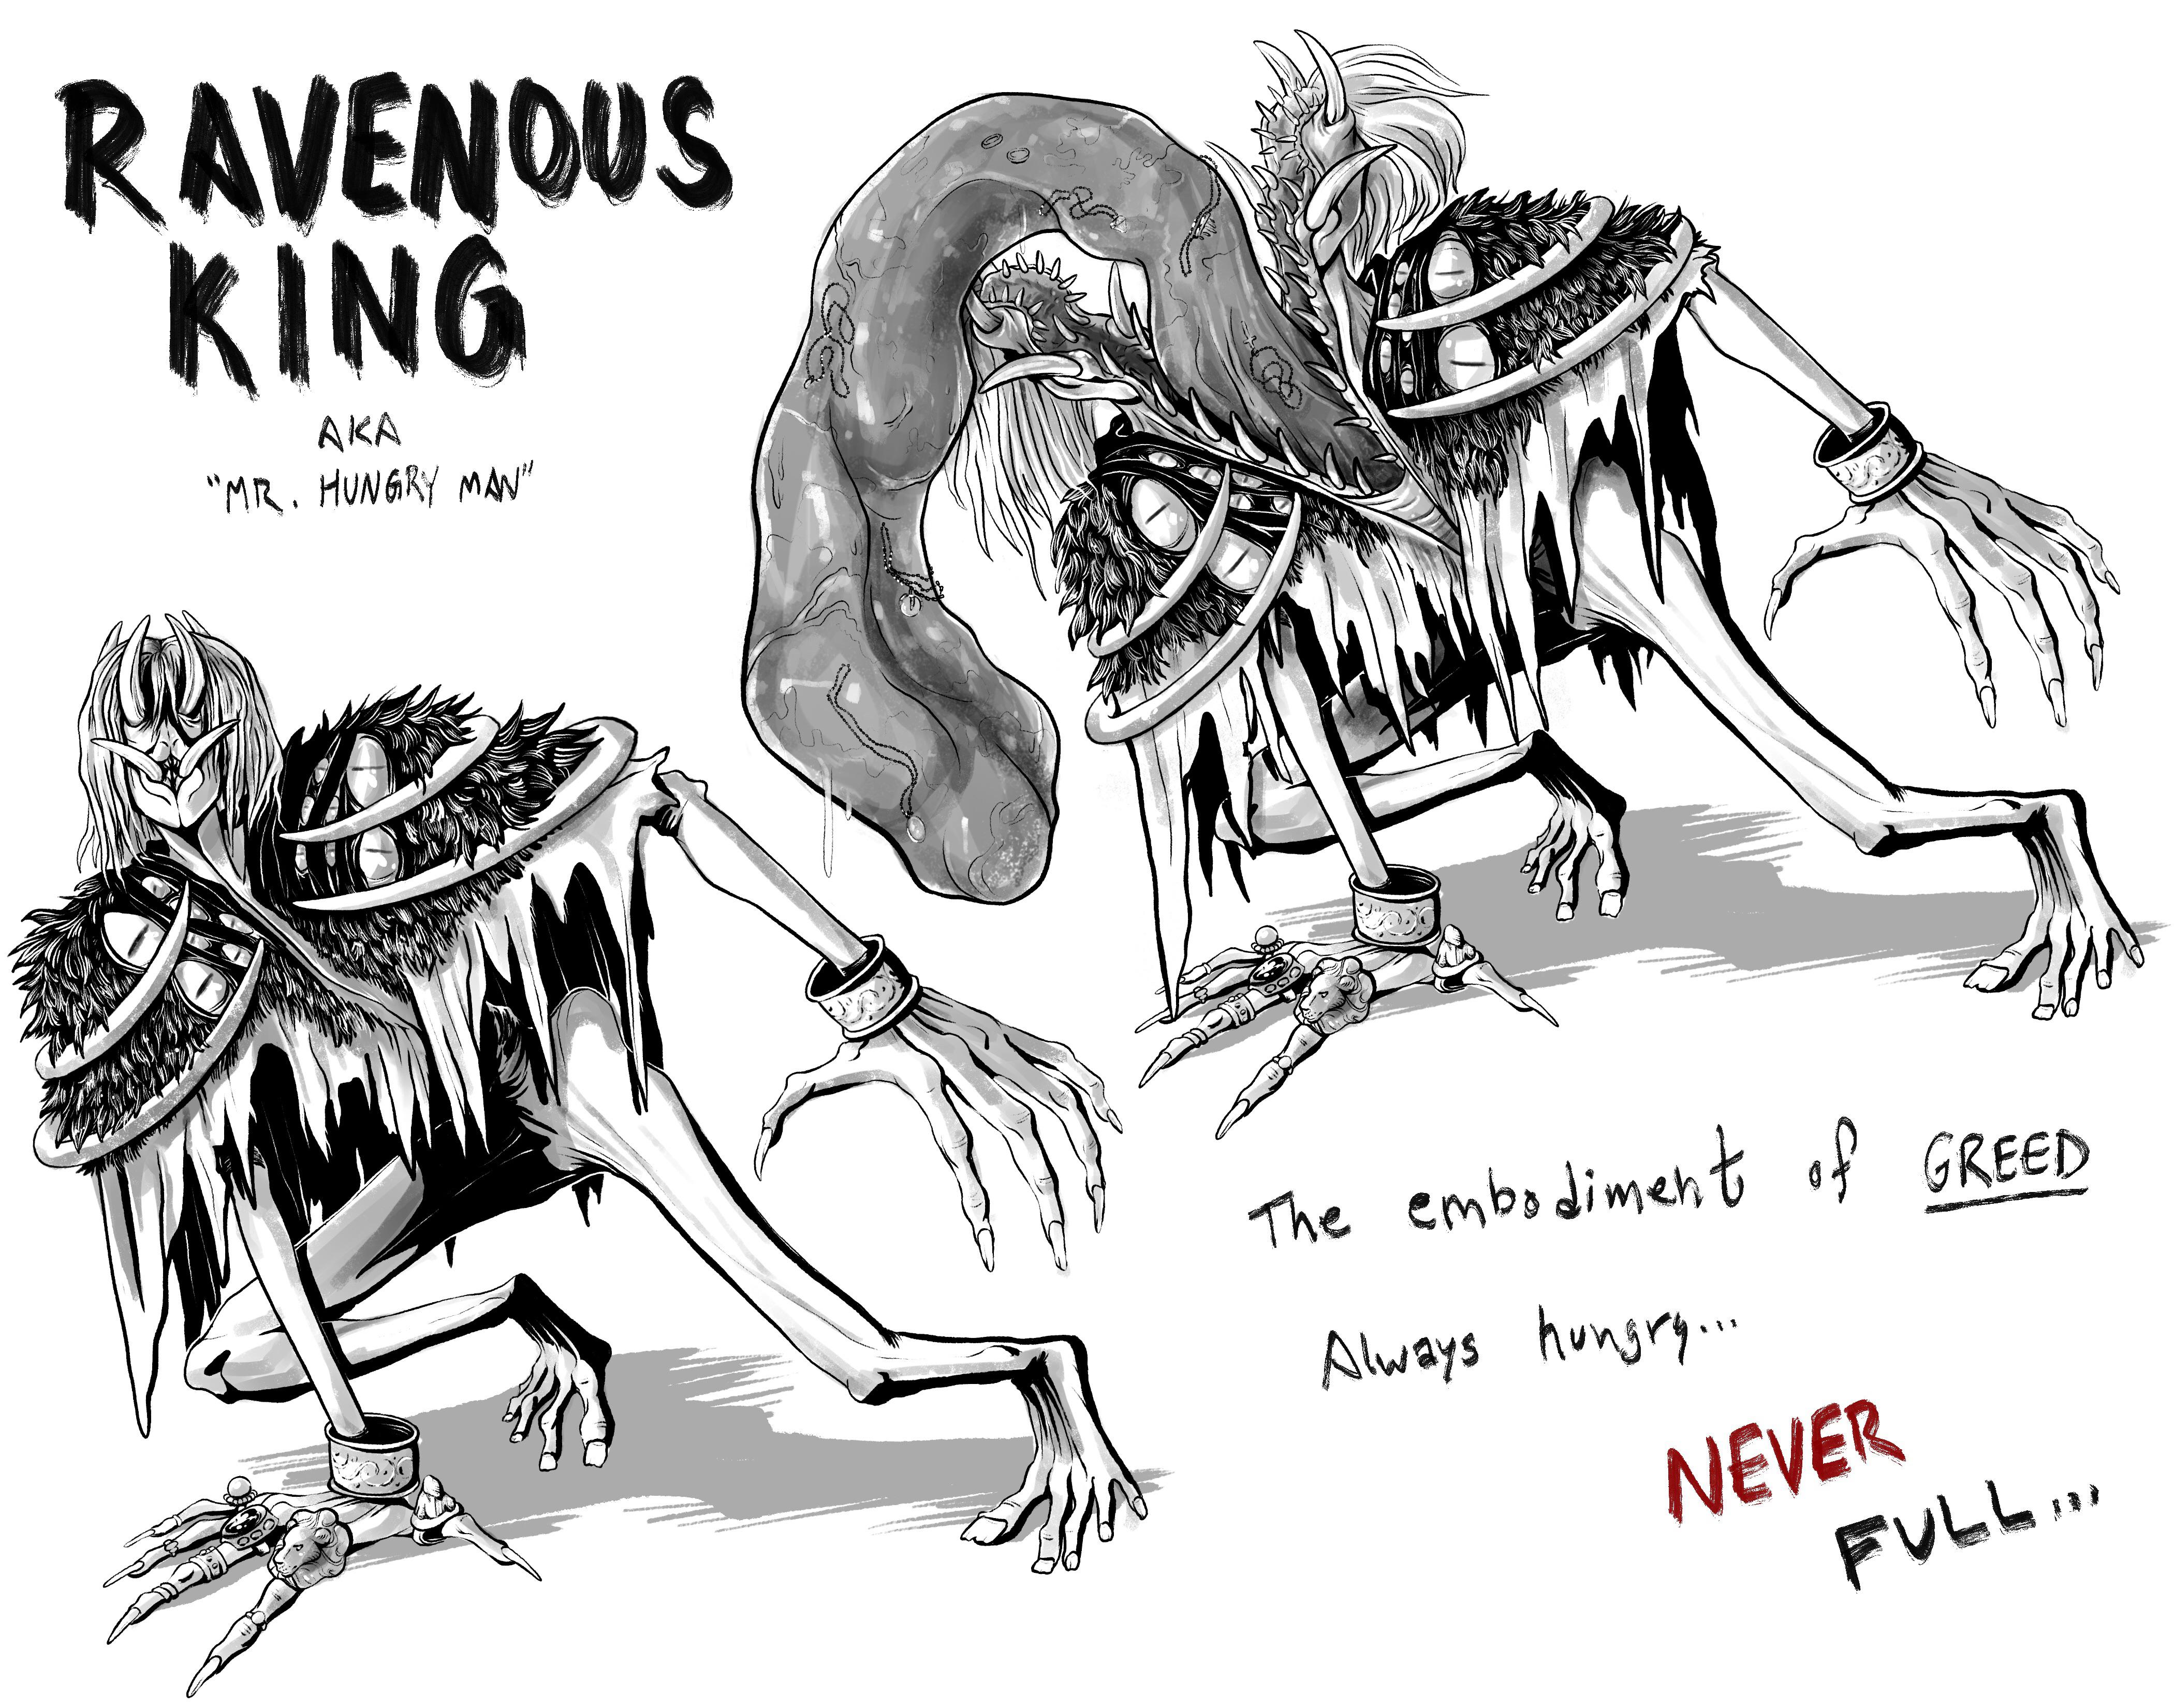 RAVENOUS
KING
AKA
"MR. HUNGRY MAN"
The embodiment of GREED
Always hungry...
NEVER
FULL...